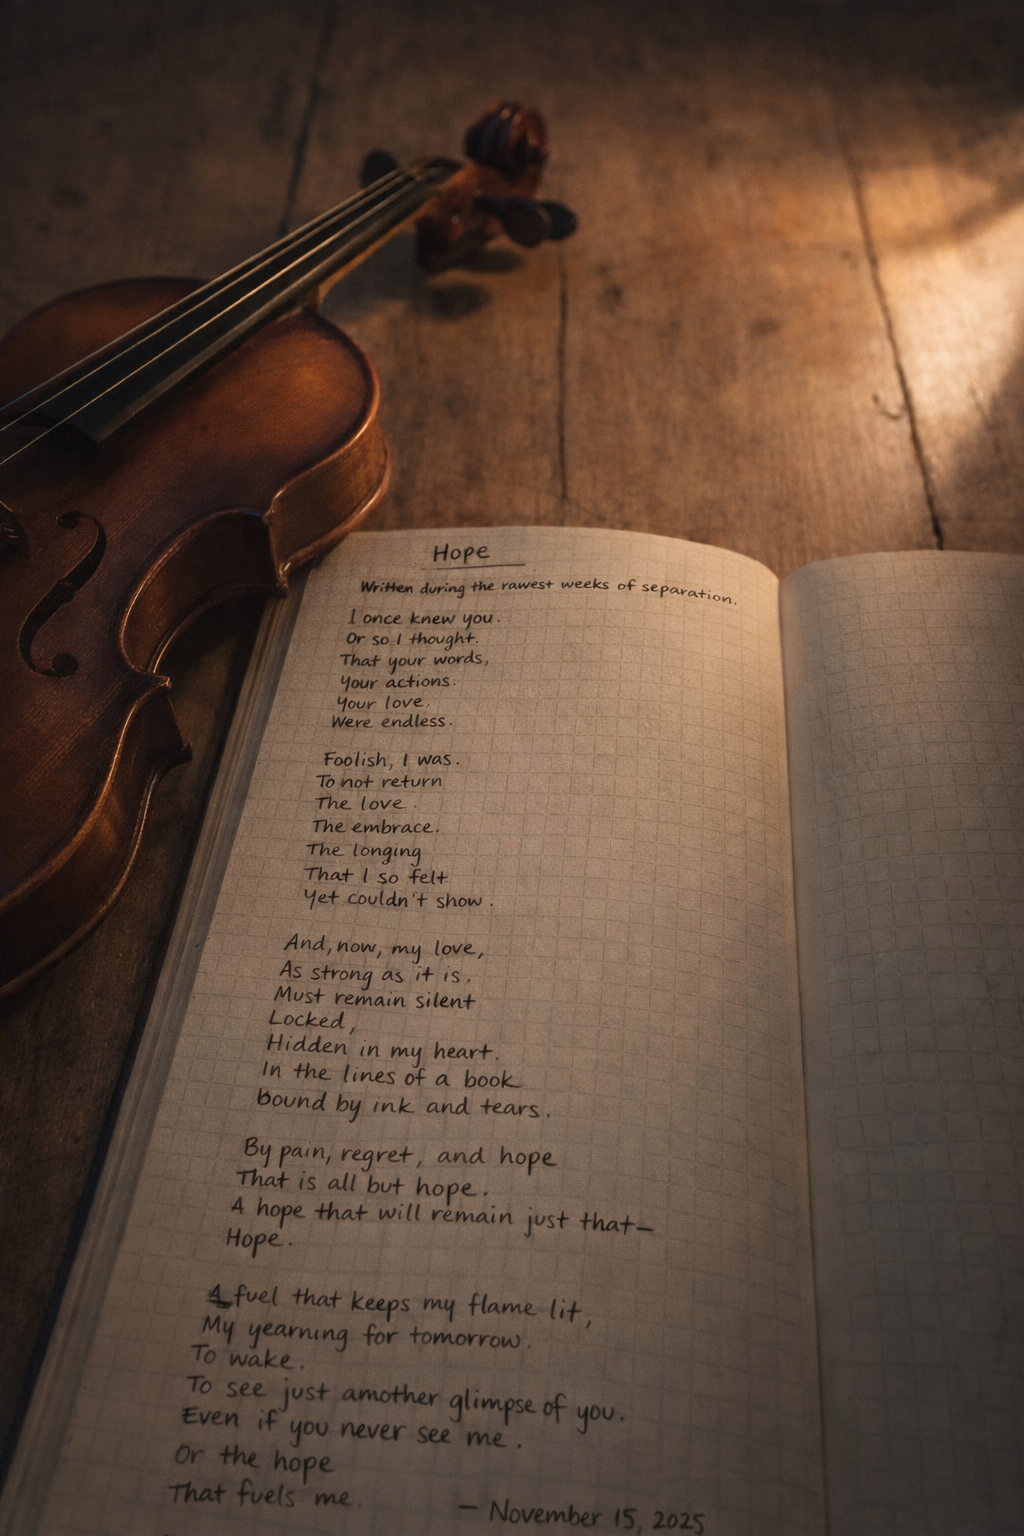 Hope
Written during the rawest weeks of separation.
I once knew you.
Or so I thought.
That your words,
Your actions.
Your love,
Were endless.
Foolish, I was.
To not return
The love.
The embrace.
The longing
That I so felt
Yet couldn't show.
And, now, my love,
As strong as it is.
Must remain silent
Locked,
Hidden in my heart.
In the lines of a book
Bound by ink and tears.
By pain, regret, and hope
That is all but hope.
A hope that will remain just that—
Hope.
A fuel that keeps my flame lit,
My yearning for tomorrow.
To wake.
To see just amother glimpse of you.
Even if you never see me.
Or the hope
That fuels me.
— November 15, 2025